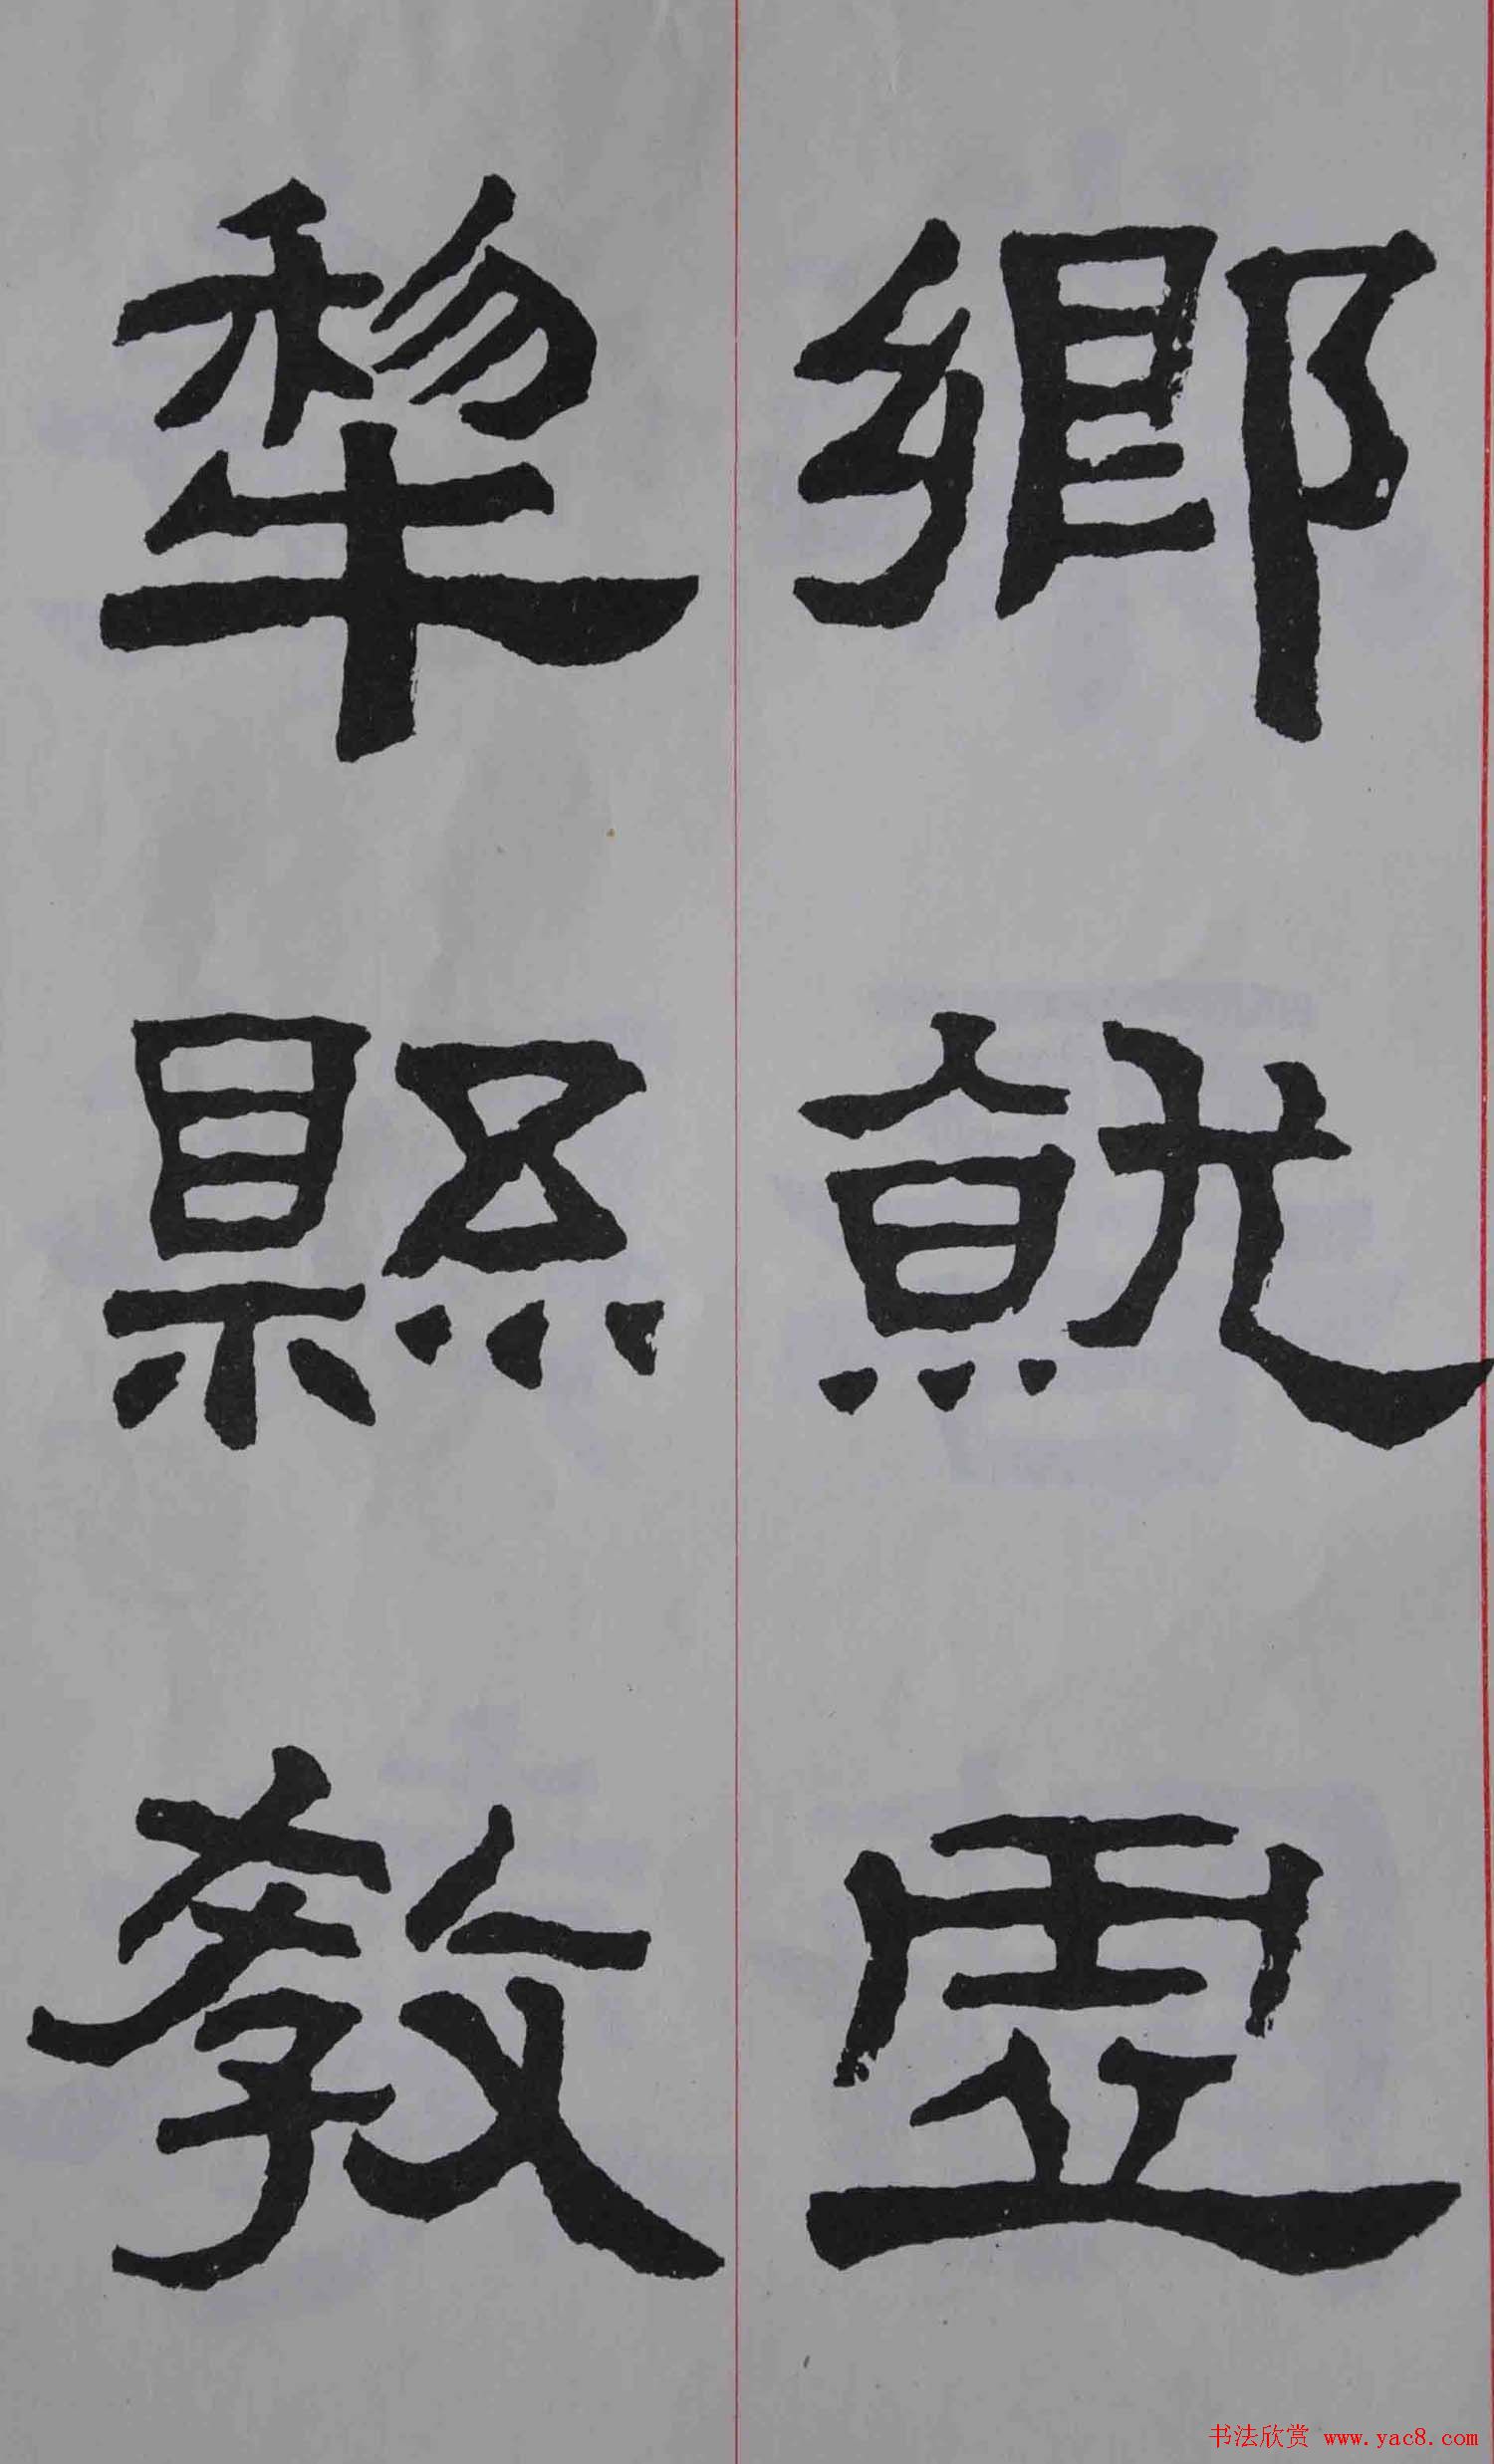 鄉就虛
犂縣教
书法欣赏 www.yac8.com